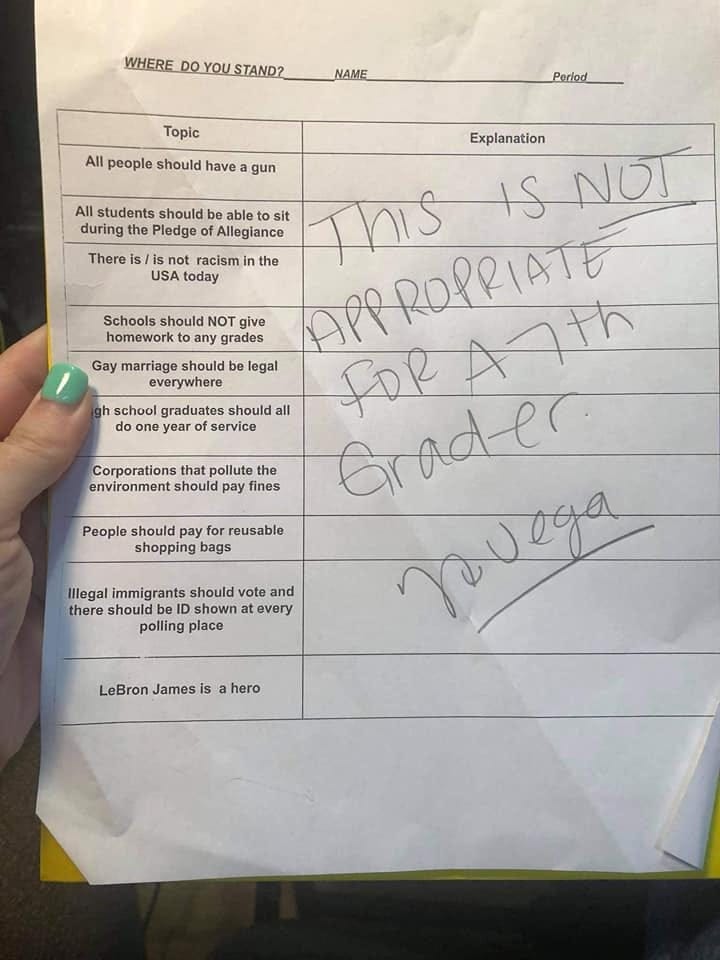 WHERE DO YOU STAND? NAME Period
Topic
Explanation
All people should have a gun
All students should be able to sit
during the Pledge of Allegiance
There is / is not racism in the
USA today
Schools should NOT give
homework to any grades
Gay marriage should be legal
everywhere
gh school graduates should all
do one year of service
Corporations that pollute the
environment should pay fines
People should pay for reusable
shopping bags
Illegal immigrants should vote and
there should be ID shown at every
polling place
LeBron James is a hero
THIS IS NOT
APPROPRIATE
FOR A 7th
Grader.
Vega